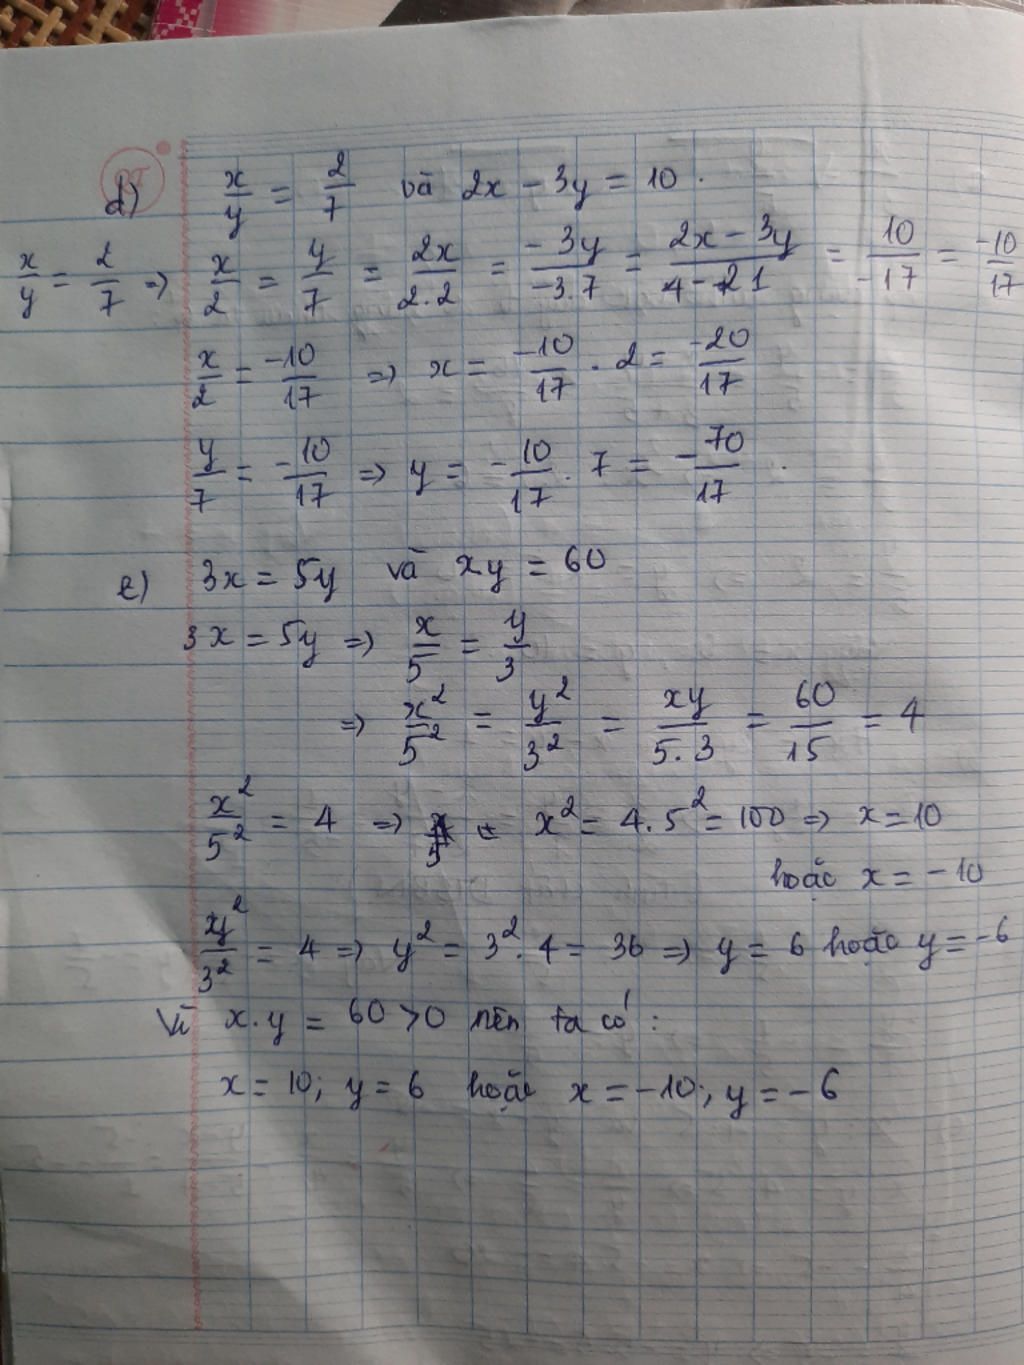 BT
d) x/y = 2/7 và 2x - 3y = 10.
x/y = 2/7 => x/2 = y/7 = 2x/2.2 = -3y/-3.7 = 2x - 3y/4 - 21 = 10/-17 = -10/17
x/2 = -10/17 => x = -10/17 . 2 = -20/17
y/7 = -10/17 => y = -10/17 . 7 = -70/17.
e) 3x = 5y và xy = 60
3x = 5y => x/5 = y/3
=> x²/5² = y²/3² = xy/5.3 = 60/15 = 4
x²/5² = 4 => x² = 4.5² = 100 => x = 10
hoặc x = -10
y²/3² = 4 => y² = 3².4 = 36 => y = 6 hoặc y = -6
Vì x.y = 60 > 0 nên ta có:
x = 10; y = 6 hoặc x = -10; y = -6